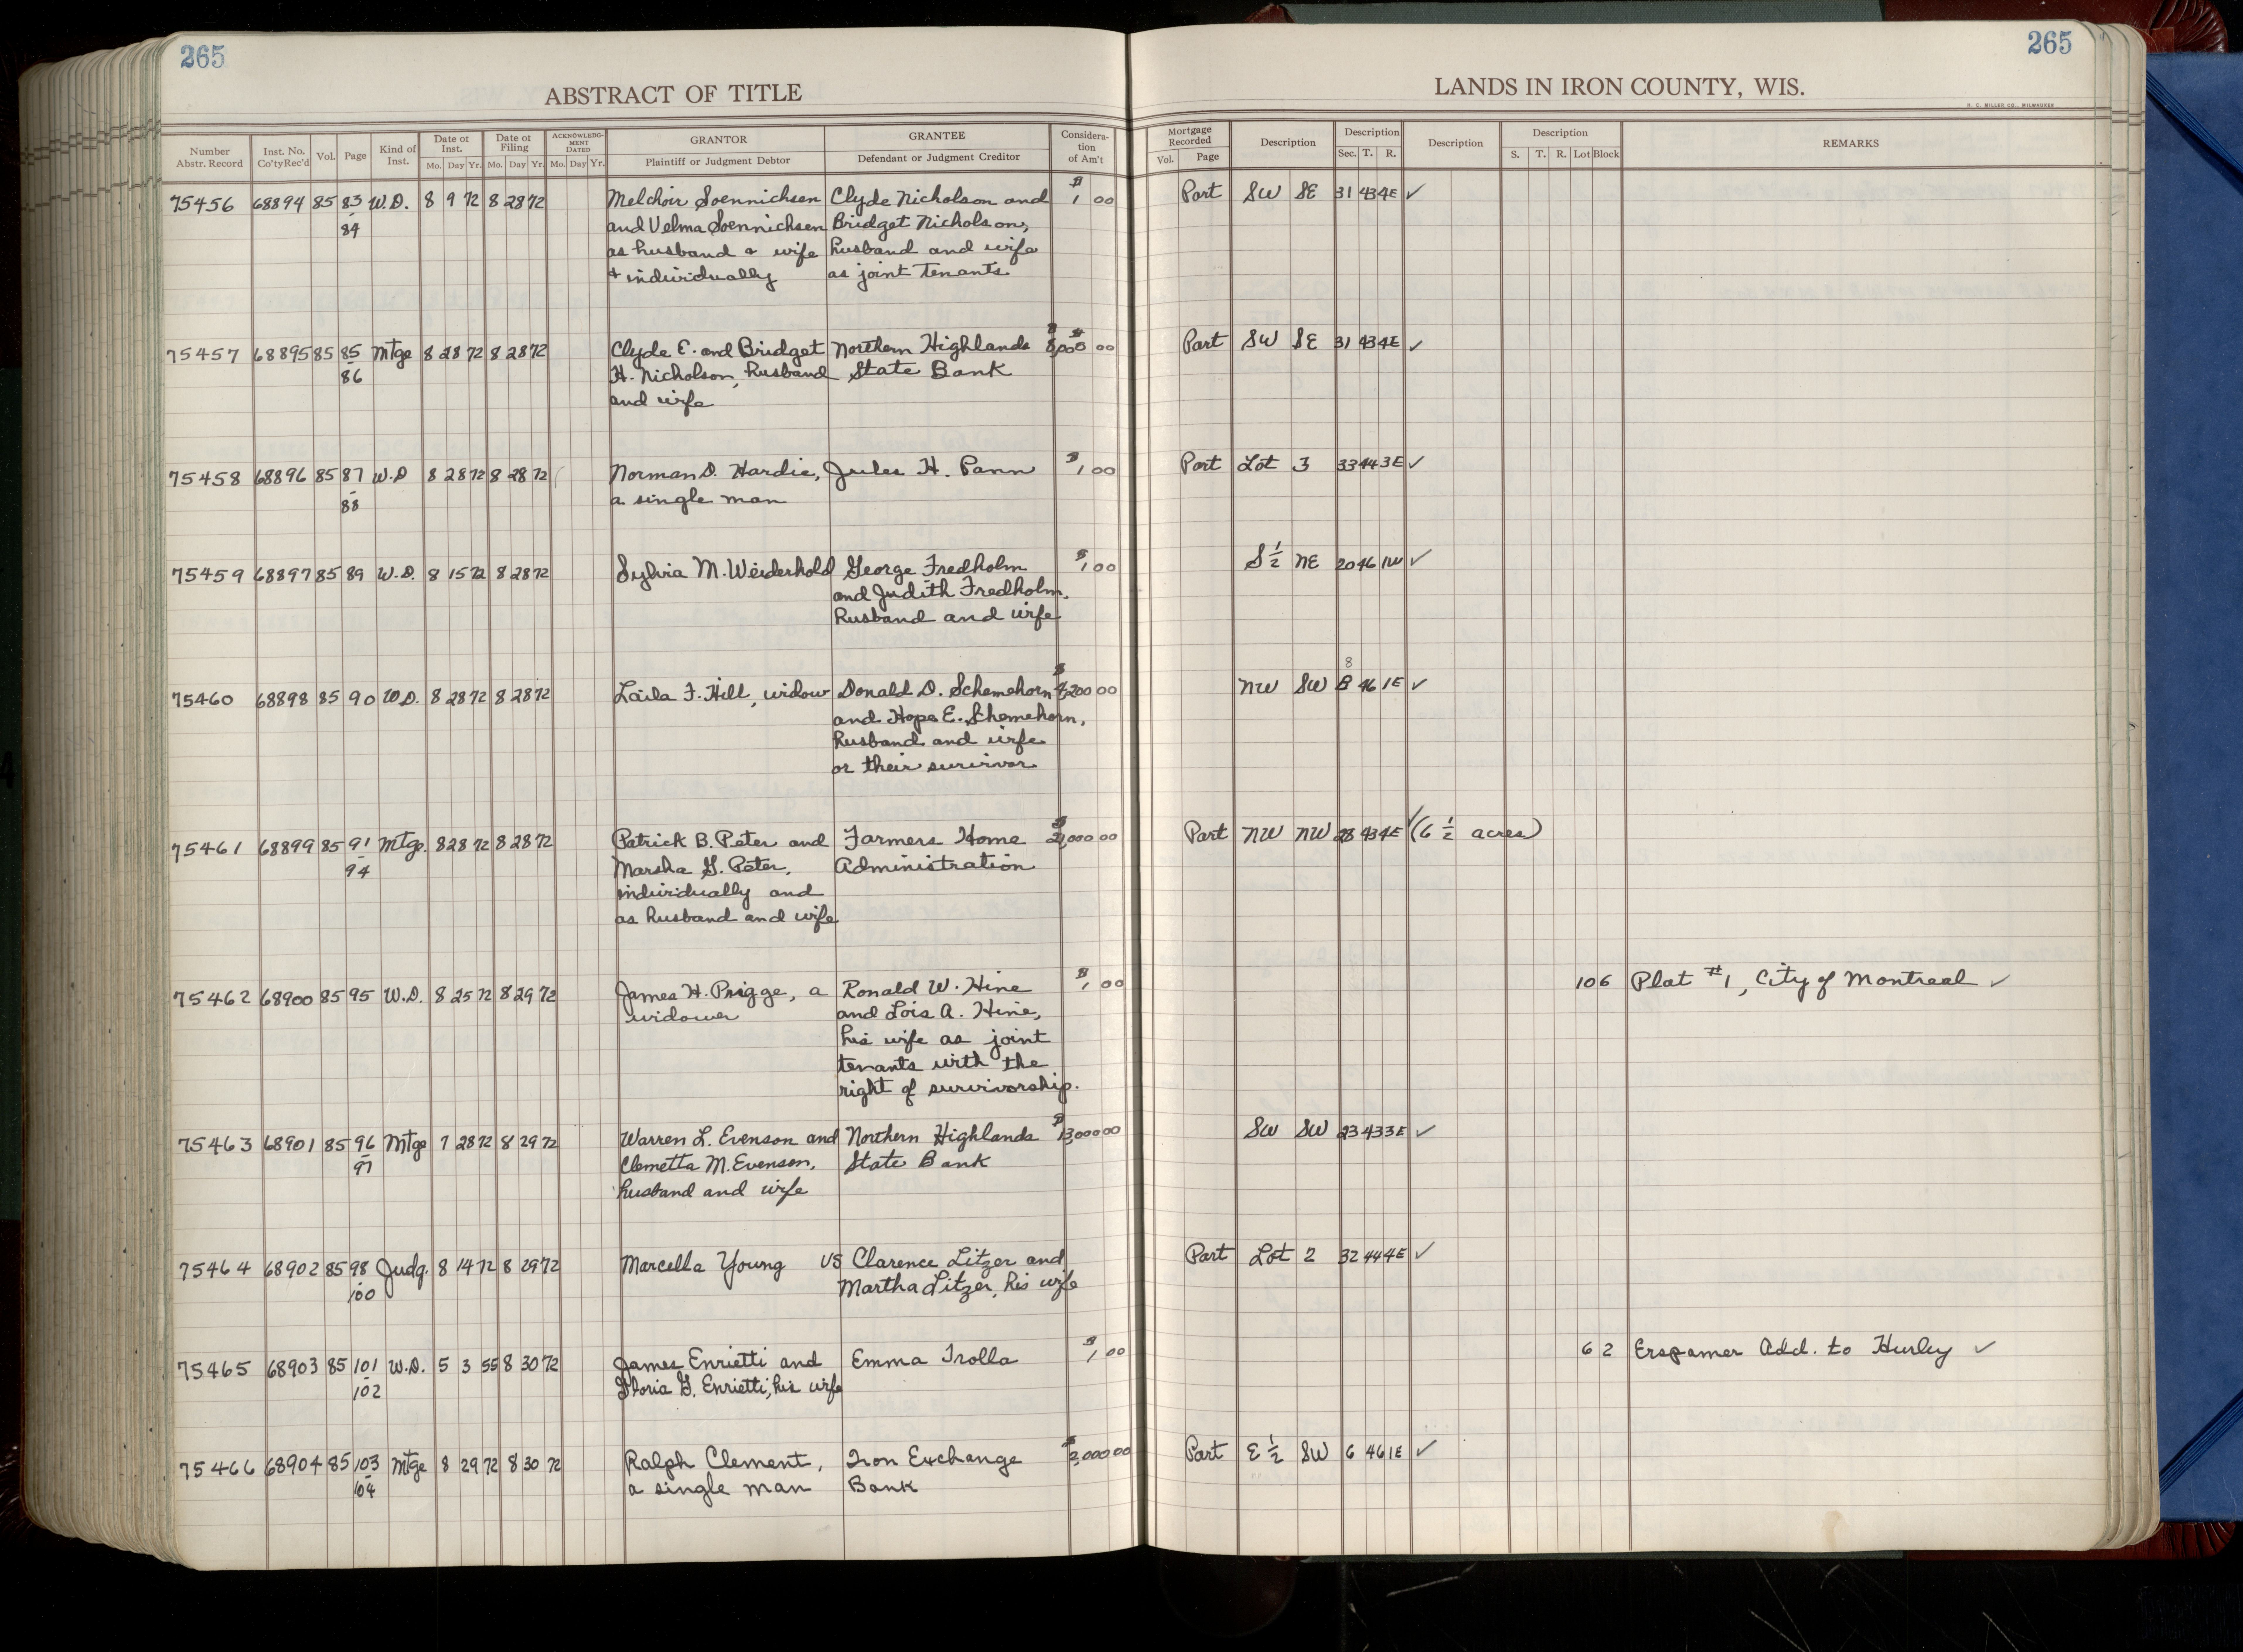 265
265
ABSTRACT OF TITLE
LANDS IN IRON COUNTY, WIS.
H. C. MILLER CO., MILWAUKEE
Number Abstr. Record | Inst. No. Co'ty Rec'd | Vol. | Page | Kind of Inst. | Date of Inst. Mo. Day Yr. | Date of Filing Mo. Day Yr. | ACKNOWLEDGMENT DATED Mo. Day Yr. | GRANTOR Plaintiff or Judgment Debtor | GRANTEE Defendant or Judgment Creditor | Consideration of Am't | Mortgage Recorded Vol. Page | Description | Description Sec. T. R. | Description | Description S. T. R. Lot Block | REMARKS
75456 68894 85 83 W.D. 8 9 72 8 28 72 Melchoir Soennichsen Clyde Nicholson and $1 00 Part SW SE 31 43 4E ✓
- 84 and Velma Soennichsen Bridget Nicholson,
as husband & wife husband and wife
+ individually as joint tenants
75457 68895 85 85 Mtge 8 28 72 8 28 72 Clyde E. and Bridget Northern Highlands $ 00 Part SW SE 31 43 4E ✓
- 86 H. Nicholson, husband State Bank
and wife
75458 68896 85 87 W.D 8 28 72 8 28 72 Norman D. Hardie, Jules H. Pann $1 00 Part Lot 3 33 44 3E ✓
- 88 a single man
75459 68897 85 89 W.D. 8 15 72 8 28 72 Sylvia M. Weiderhold George Fredholm $1 00 S 1/2 NE 20 46 1W ✓
and Judith Fredholm,
husband and wife
8
75460 68898 85 90 W.D. 8 28 72 8 28 72 Laila F. Hill, widow Donald D. Schemehorn $ 00 NW SW 8 46 1E ✓
and Hope E. Schemehorn,
husband and wife
or their survivor
75461 68899 85 91 Mtge. 8 28 72 8 28 72 Patrick B. Peter and Farmers Home $ 00 Part NW NW 28 43 4E ✓ (6 1/2 acres)
- 94 Marsha G. Peter, Administration
individually and
as husband and wife
75462 68900 85 95 W.D. 8 25 72 8 29 72 James H. Prigge, a Ronald W. Hine $1 00 106 Plat #1, City of Montreal ✓
widower and Lois A. Hine,
his wife as joint
tenants with the
right of survivorship.
75463 68901 85 96 Mtge 7 28 72 8 29 72 Warren L. Evenson and Northern Highlands $13,000 00 SW SW 23 43 3E ✓
- 97 Clemetta M. Evenson, State Bank
husband and wife
75464 68902 85 98 Judg. 8 14 72 8 29 72 Marcella Young VS Clarence Litzer and Part Lot 2 32 44 4E ✓
- 100 Martha Litzer, his wife
75465 68903 85 101 W.D. 5 3 55 8 30 72 James Enrietti and Emma Trolla $1 00 6 2 Erspamer Add. to Hurley ✓
- 102 Gloria G. Enrietti, his wife
75466 68904 85 103 Mtge 8 29 72 8 30 72 Ralph Clement, Iron Exchange $3,000 00 Part E 1/2 SW 6 46 1E ✓
- 104 a single man Bank